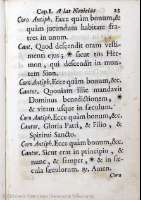 Cap. I. A las Novicias 25
Coro Antiph. Ecce quàm bonum, &
quàm jucundum habitare fra-
tres in unum.
Cant. Quod descendit oram vesti-
menti ejus; * sicut ros Her-
mon, qui descendit in mon-
tem Sion.
Coro Antiph. Ecce quàm bonum, &c.
Cantor. Quoniam illic mandavit
Dominus benedictionem, *
& vitam usque in sæculum.
Coro Antiph. Ecce quàm bonum, &c.
Cantor. Gloria Patri, & Filio, &
Spiritui Sancto.
Coro Antiph. Ecce quàm bonum, &c.
Cantor. Sicut erat in principio, &
nunc, & semper, * & in sæ-
cula sæculorum. ℟. Amen.
Coro